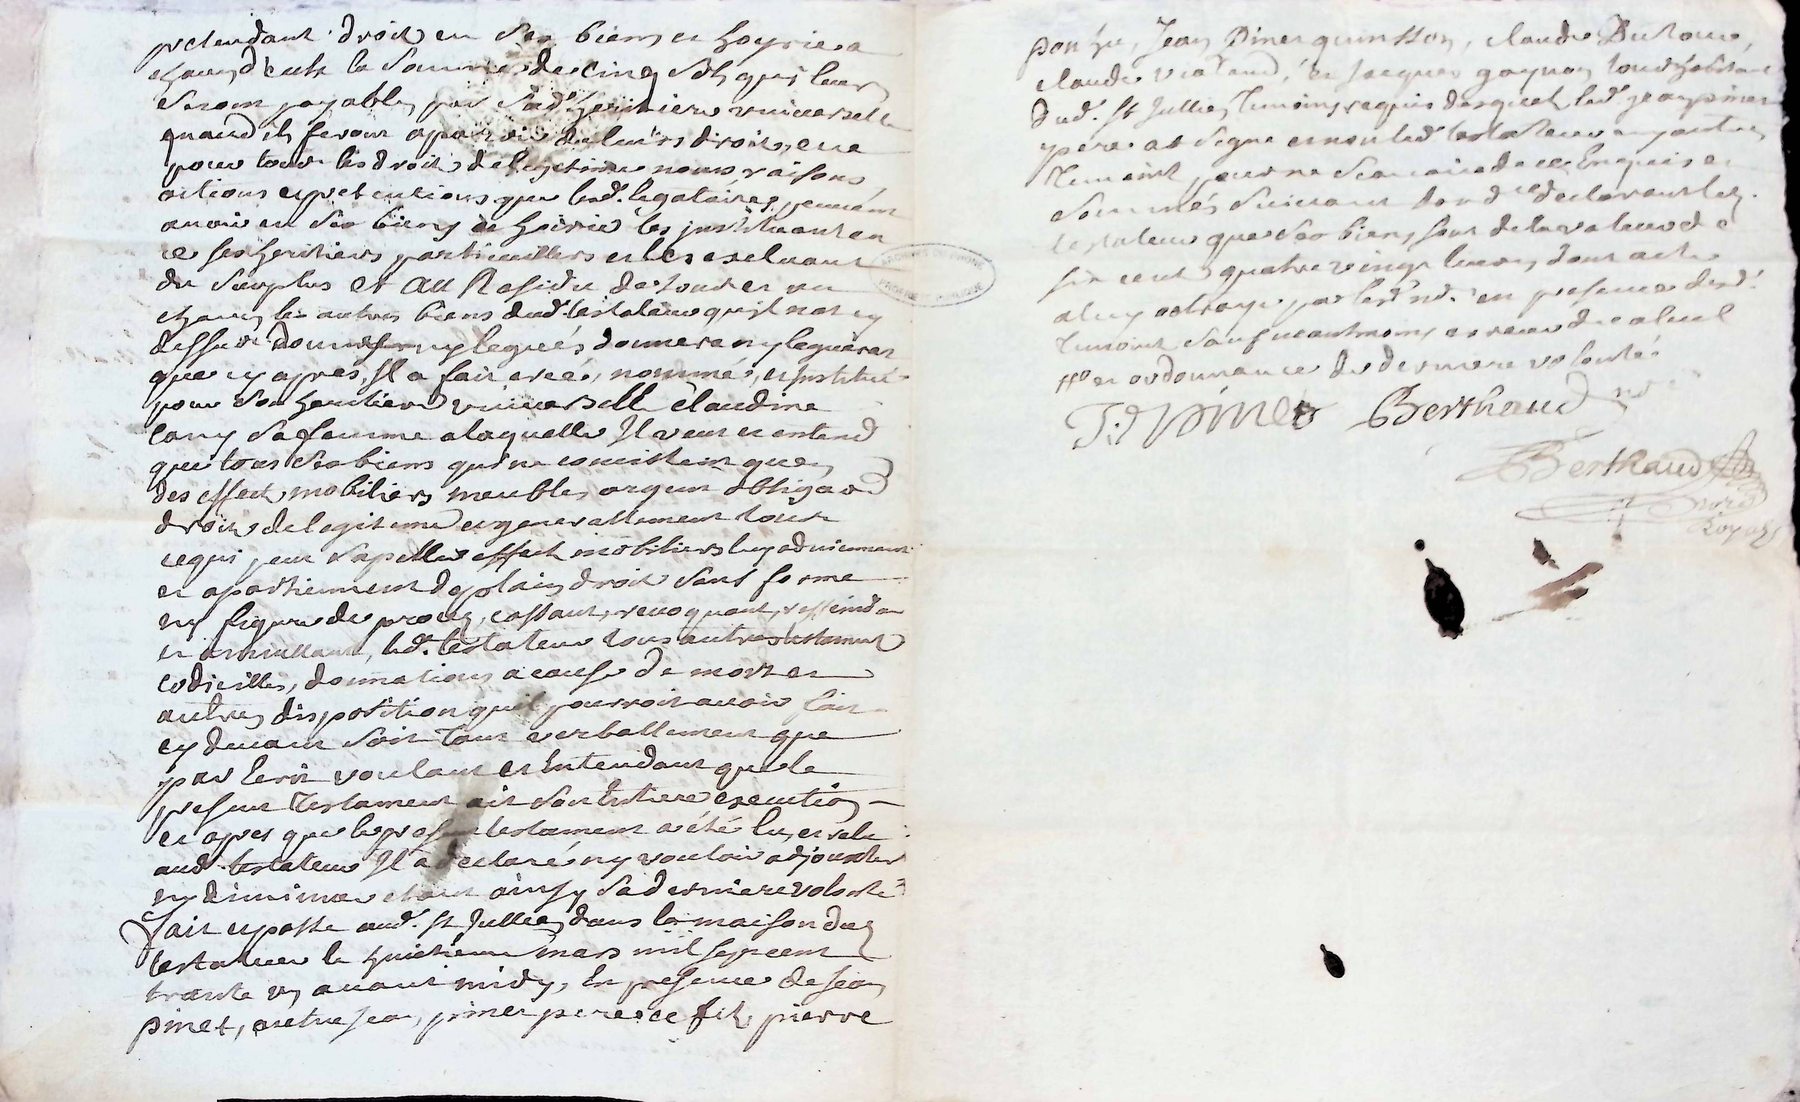 pretendant droit en ses biens et hoyrie a
chacun d'eulx la somme de cinq sols quy leur
seront payables par sad. heritiere universelle
quand ils feront aparoir de leurs droits, et ce
pour tous les droits de legitime noms raisons
actions et pretentions que lesd. legataires peuvent
avoir en ses biens et hoirie les instituant en
ce ses heritiers particulliers et les excluant
du surplus et Au Residu de tous et un
chacun les autres biens dud. testateur quyl n'a cy
dessus donnés ny legués donnera ny leguera
que cy apres, Il a fait creé, nommé, et Institué
pour son heritiere universelle Claudine
sa femme a laquelle Il veut et entend
que tous ses biens qui ne consistent que en
des effects mobiliers meubles argent obligaons
droits de legitime et generallement tout
ce qui peut s'apeller effects mobiliers luy adviennent
et apartiennent de plain droit sans forme
ny figure de proces, cassant, revoquant,
et annullant, led. testateur tous autres testament
codicilles, donnations a cause de mort et
autres disposition quil pourroit avoir fait
cy devant soit tant verballement que
par Ecrit voulant et Entendant que le
present Testament ait son Entiere execution
et apres que le present testament a été lu, et relu
aud. testateur Il a declaré n'y vouloir adjouster
ny diminuer etant ainsy sa derniere volonté
fait et passé aud. St Jullien dans la maison du
testateur le huictieme mars mil sept cent
trente un avant midy, En presence de Jean
pinet, autre Jean pinet pere et fils, pierre
Jean Pinet quinsson, claude
claude et Jacques gagnon tous habitant
dud. St Jullien Temoins requis desquels led. Jean pinet
pere a signé et non led. testateur ny autres
Temoins pour ne scavoir de ce Enquis et
sommés suivant l'ord.ce declarant led.
testateur que ses biens sont de la valeur de
six cent quatre vingt livres dont acte
a luy octroyé par led. nre. en presence desd.
Temoins sauf neantmoins erreur de calcul
et ordonnance de derniere volonté
J: pinet Berthaud nre
Berthaud
Nore
Royal
ARCHIVES DU RHONE
PROPRIETE PUBLIQUE